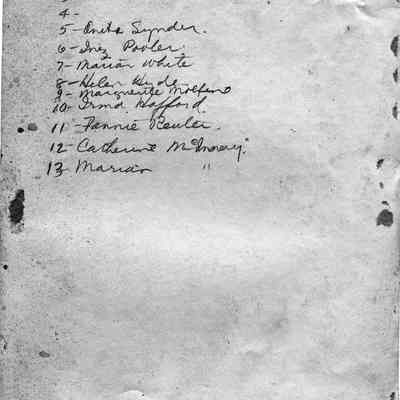 4-
5- Anita Synder.
6- Inez Pooler.
7- Marian White
8- Helen Hyde
9- Marguerite Molfino
10- Irma Hafford.
11- Fannie Reuter.
12- Catherine
13- Marian "